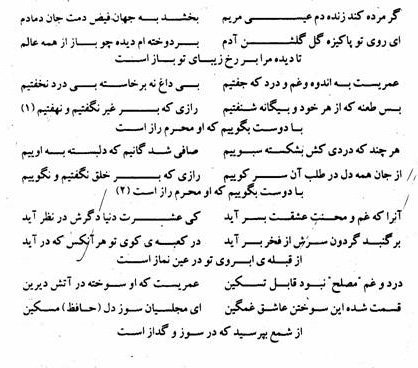 گر مرده کند زنده دم عیسی مریم بخشد به جهان فیض دمت جان دمادم
ای روی تو پاکیزه گل گلشن آدم بردوخته ام دیده چو باز از همه عالم
تا دیده مرا بر رخ زیبای تو باز است
عمریست به اندوه وغم و درد که جفتیم بی داغ نه برخاسته بی درد نخفتیم
بس طعنه که از هر خود و بیگانه شنفتیم رازی که بر غیر نگفتیم و نهفتیم (۱)
با دوست بگوییم که او محرم راز است
هر چند که دردی کش بشکسته سبوییم صافی شد گانیم که دلبسته به اوییم
از جان همه دل در طلب آن سر کوییم رازی که بر خلق نگفتیم و نگوییم
با دوست بگوییم که او محرم راز است (۲)
آنرا که غم و محنت عشقت بسر آید کی عشرت دنیا دگرش در نظر آید
برگنبد گردون سرش از فخر بر آید در کعبه ی کوی تو هر آنکس که در آید
از قبله ی ابروی تو در عین نماز است
درد و غم "مصلح" نبود قابل تسکین عمریست که او سوخته در آتش دیرین
قسمت شده این سوختن عاشق غمگین ای مجلسیان سوز دل (حافظ) مسکین
از شمع بپرسید که در سوز و گداز است